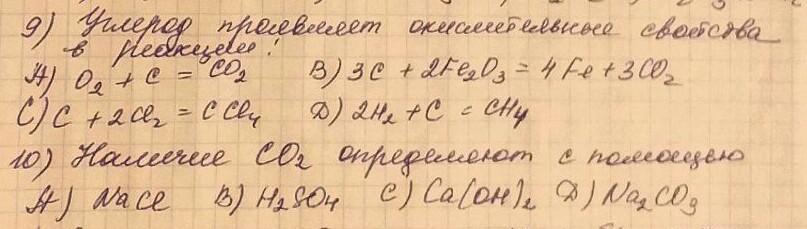 9) Углерод проявляет окислительные свойства
в реакции:
A) O₂ + C = CO₂ B) 3C + 2Fe₂O₃ = 4Fe + 3CO₂
C) C + 2Cl₂ = CCl₄ D) 2H₂ + C = CH₄
10) Наличие CO₂ определяют с помощью
A) NaCl B) H₂SO₄ C) Ca(OH)₂ D) Na₂CO₃